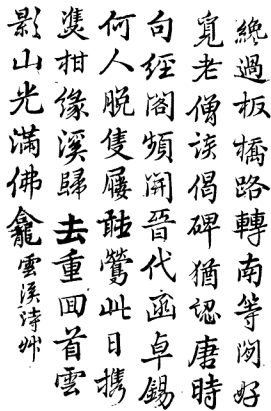 纔過板橋路轉南等閒好
覓老僧談偈碑猶認唐時
句經閣頻開晉代函卓錫
何人脫隻屨聽鶯此日攜
雙柑緣溪歸去重回首雲
影山光滿佛龕雲溪詩艸